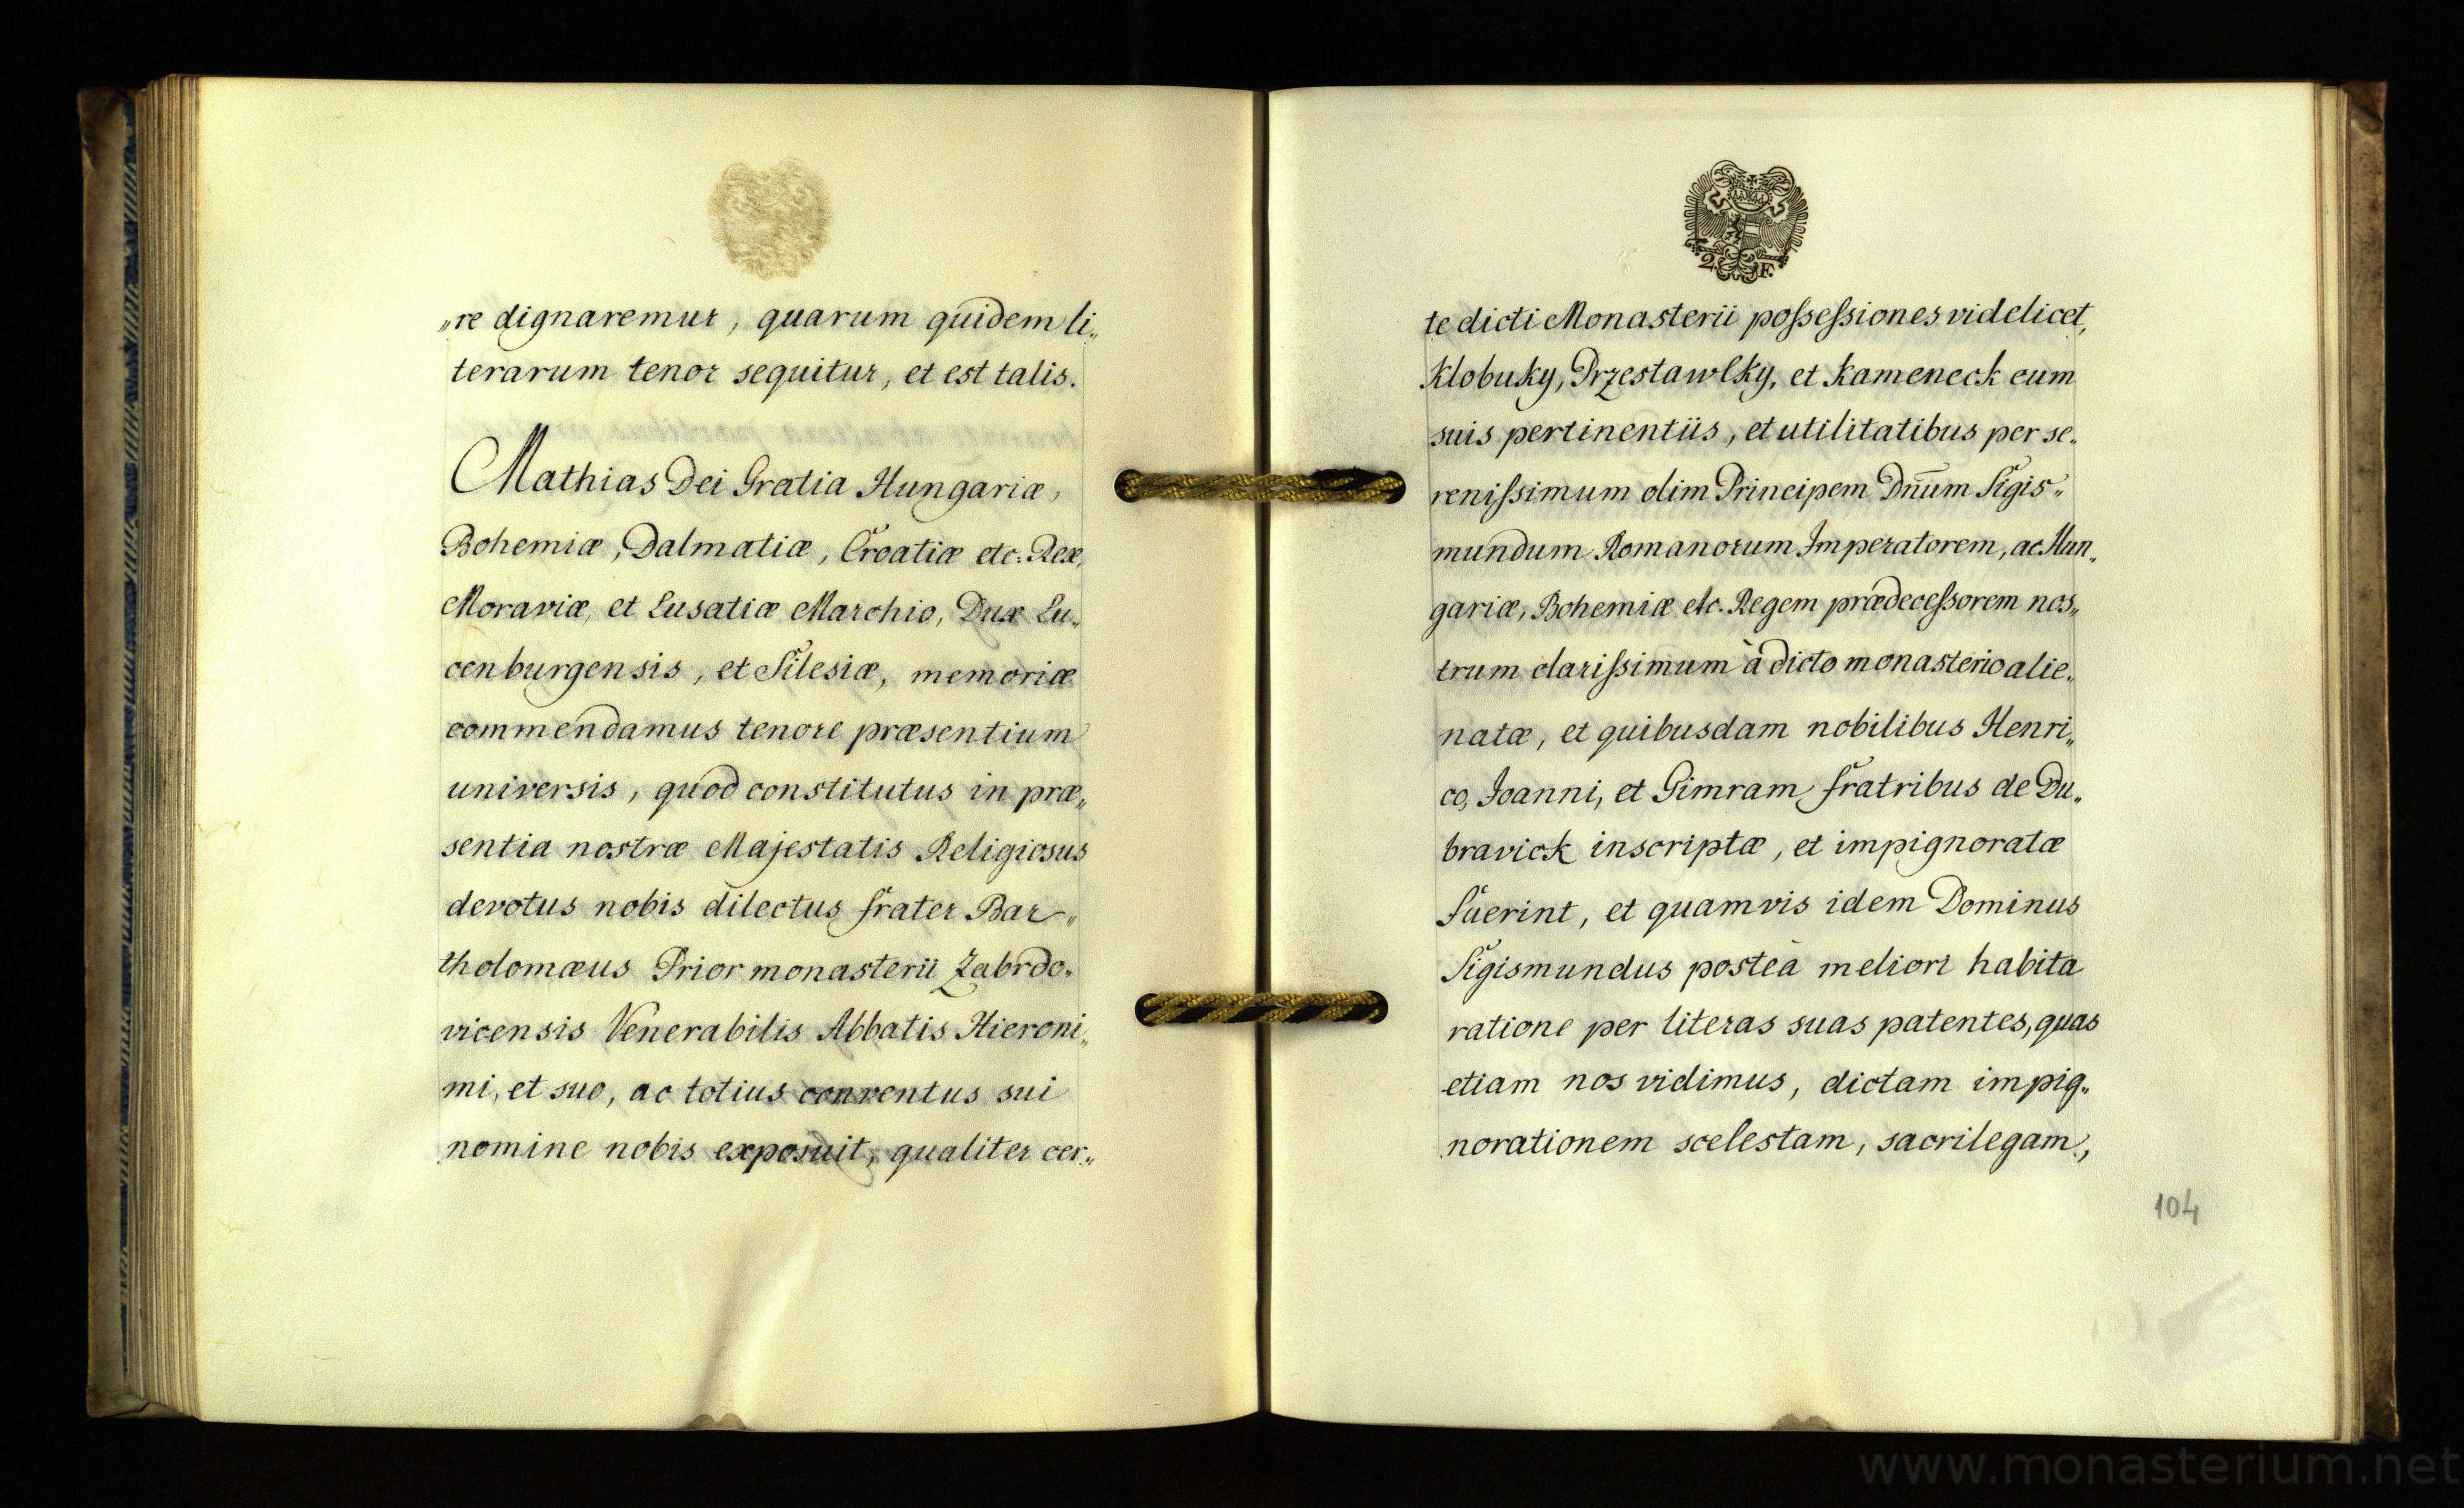 „re dignaremur, quarum quidem li„
terarum tenor sequitur, et est talis.
Mathias Dei Gratia Hungariæ,
Bohemiæ, Dalmatiæ, Croatiæ etc: Rex,
Moraviæ, et Lusatiæ Marchio, Dux Lu„
cenburgensis, et Silesiæ, memoriæ
commendamus tenore præsentium
universis, quod constitutus in præ„
sentia nostræ Majestatis Religiosus
devotus nobis dilectus frater Bar„
tholomæus Prior monasterii Zabrdo„
vicensis Venerabilis Abbatis Hieroni„
mi, et suo, ac totius conventus sui
nomine nobis exposuit, qualiter cer„
2 F.
te dicti Monasterii poſseſsiones videlicet,
Klobuky, Przestawlky, et Kameneck cum
suis pertinentiis, et utilitatibus per se„
reniſsimum olim Principem Dn̄um Sigis„
mundum Romanorum Imperatorem, ac Hun„
gariæ, Bohemiæ etc. Regem prædeceſsorem nos„
trum clariſsimum à dicto monasterio alie„
natæ, et quibusdam nobilibus Henri„
co, Joanni, et Gimram fratribus de Du„
bravick inscriptæ, et impignoratæ
fuerint, et quamvis idem Dominus
Sigismundus posteà meliori habita
ratione per literas suas patentes, quas
etiam nos vidimus, dictam impig„
norationem scelestam, sacrilegam,
104
www.monasterium.net